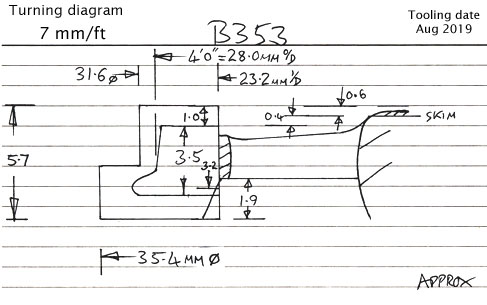 Turning diagram
7 mm/ft
B353
Tooling date
Aug 2019
4'0"=28.0MM O/D
31.6ø
23.2MM I/D
0.6
1.0
0.4
SKIM
5.7
3.5
3.2
1.9
35.4 MM ø
APPROX